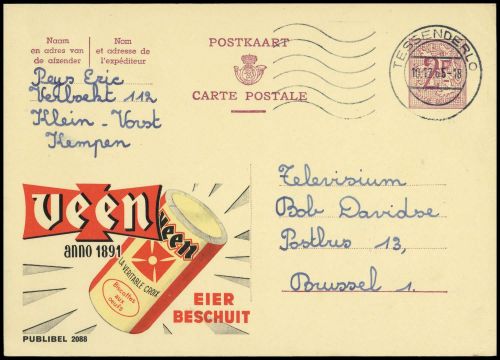 Naam
en adres van
de afzender
Nom
et adresse de
l'expéditeur
POSTKAART
CARTE POSTALE
TESSENDERLO
-18
2F
Peys Eric
Verboekt 112
Klein - Vorst
Kempen
Televisium
Bob Davidse
Postbus 13,
Brussel 1.
veen
anno 1891
veen
LA VERITABLE CROIX
Biscottes
aux
oeufs
EIER
BESCHUIT
PUBLIBEL 2088